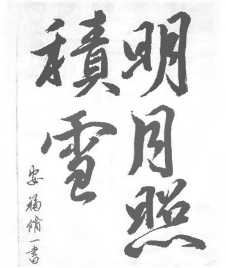 明月照
積雪
安福脩一書